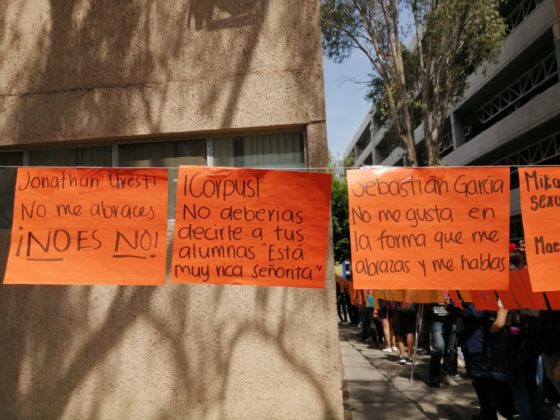 Jonathan Uresti
No me abraces
¡NO ES NO!
¡Corpus!
No deberias
decirle a tus
alumnas "Está
muy rica señorita"
Sebastian Garcia
No me gusta en
la forma que me
abrazas y me hablas